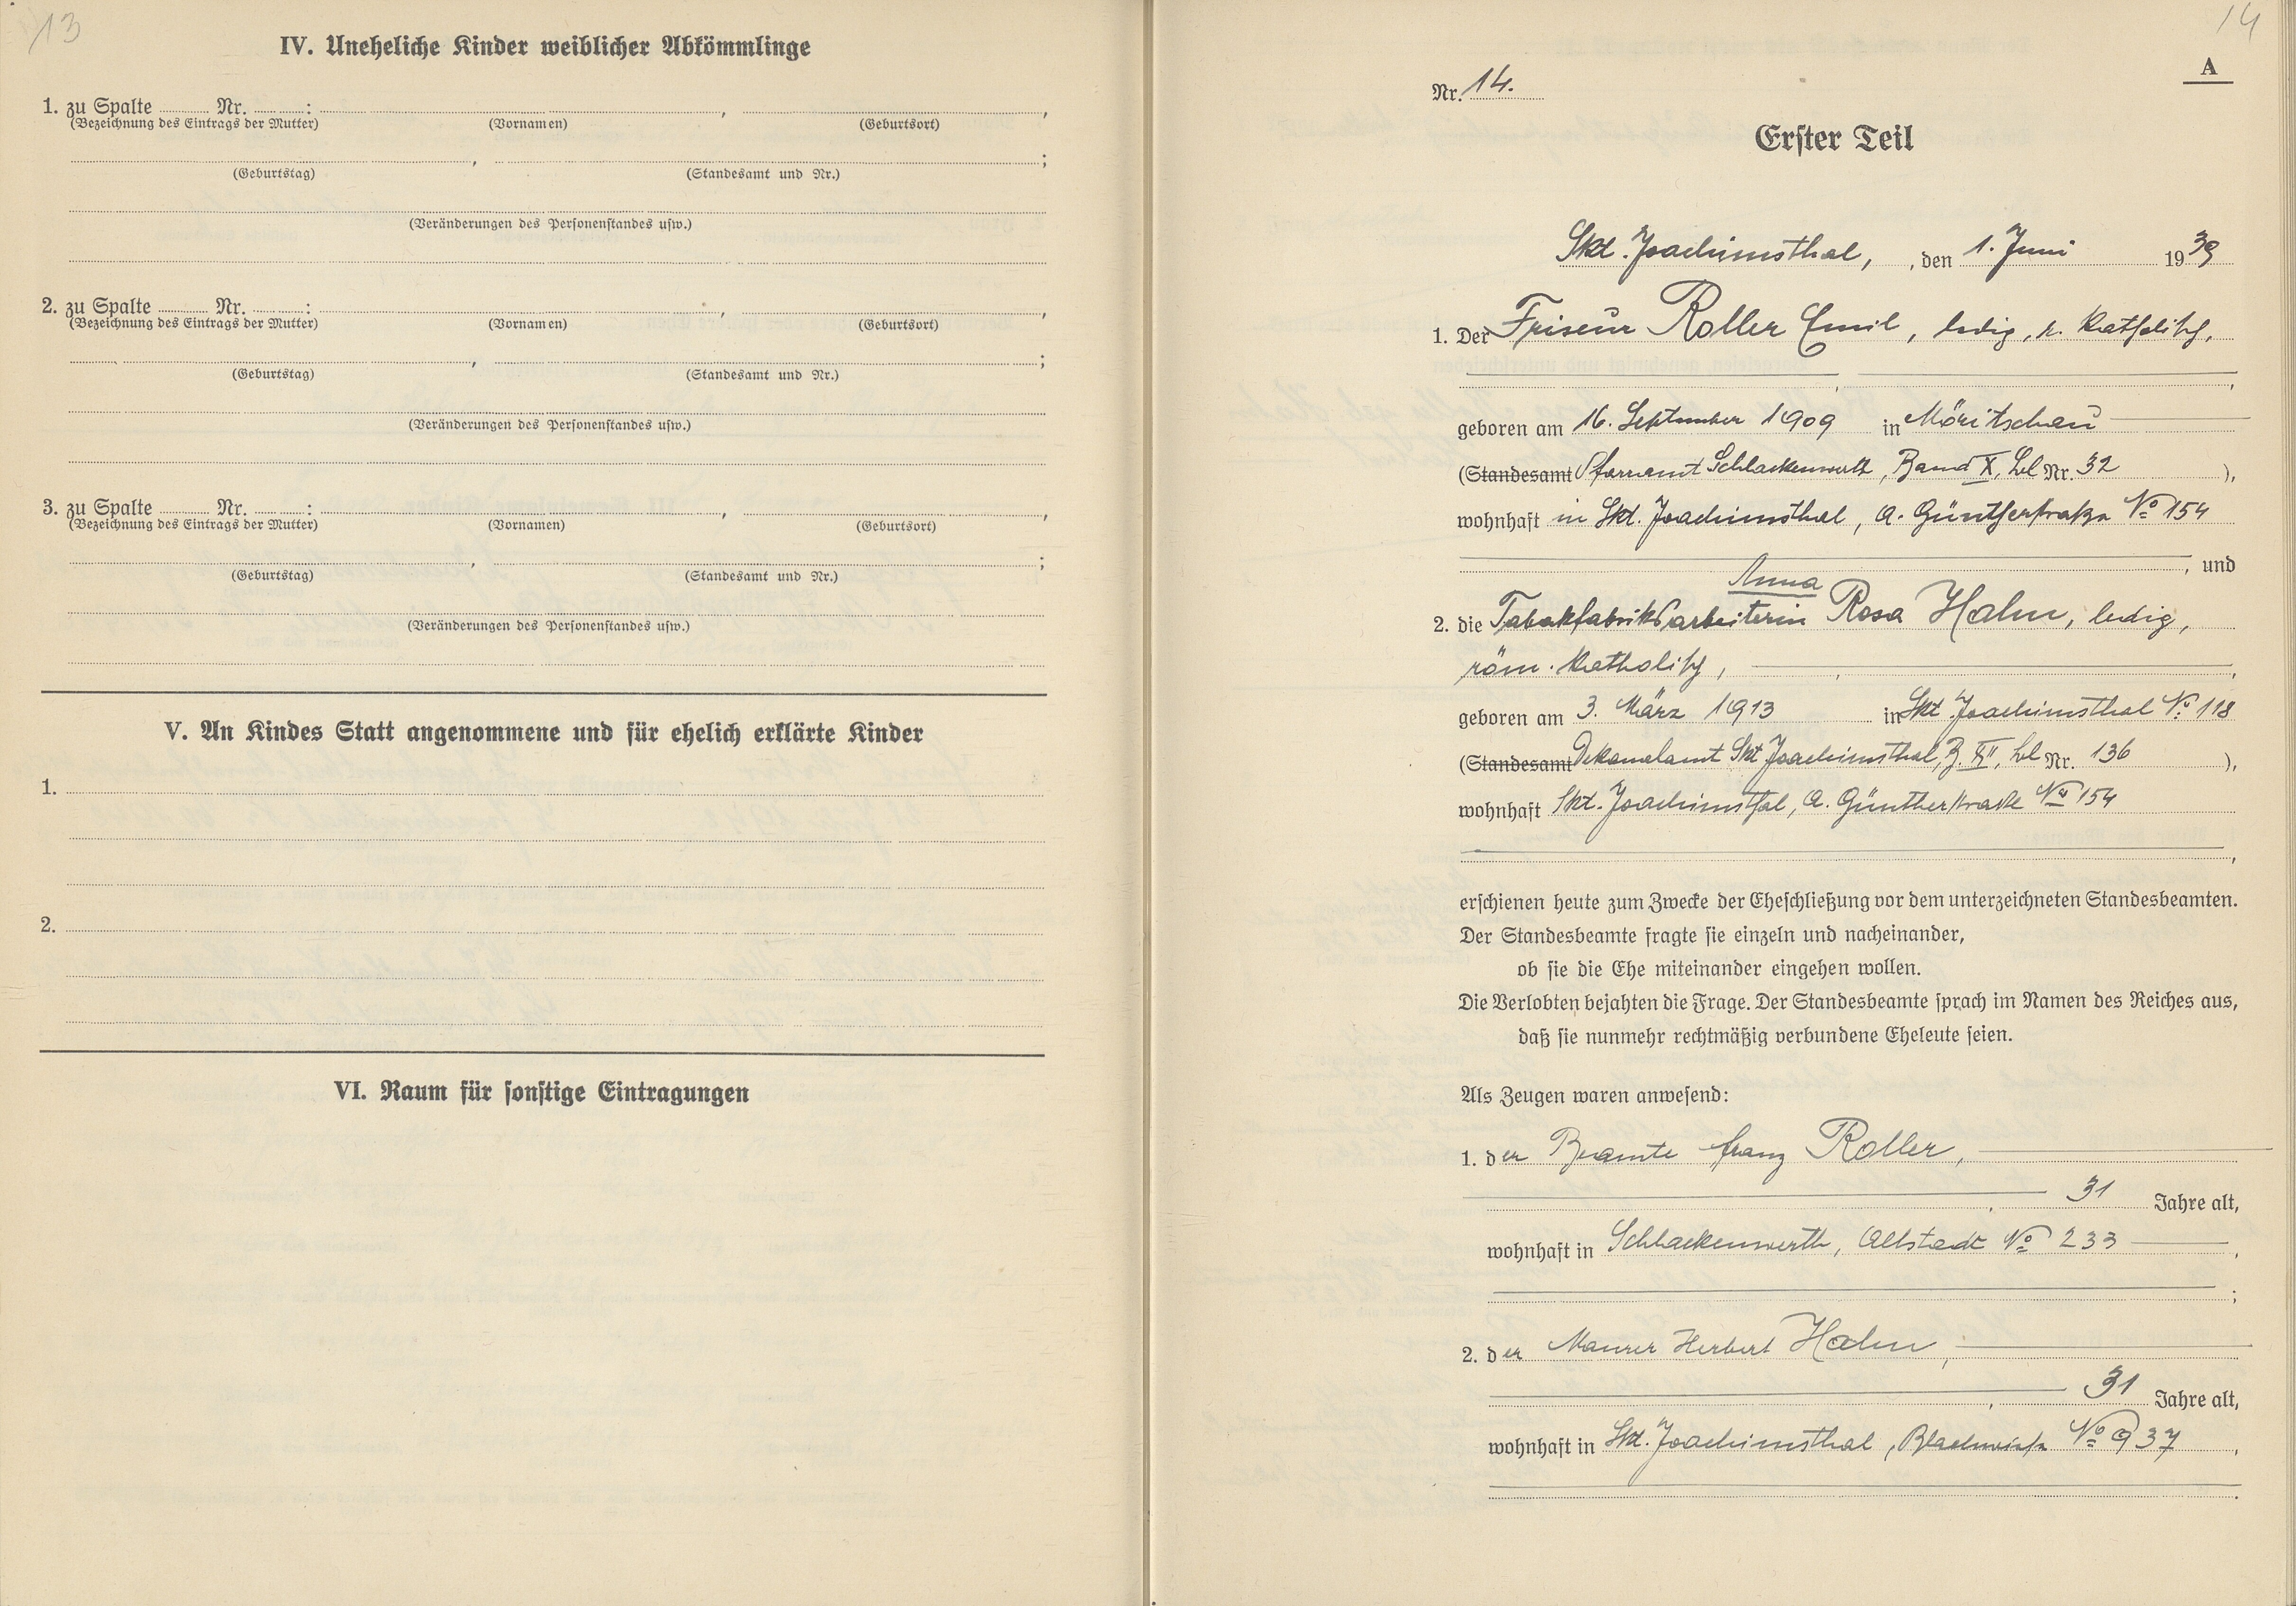 13
IV. Uneheliche Kinder weiblicher Abkömmlinge
1. zu Spalte Nr. : , ,
(Bezeichnung des Eintrags der Mutter) (Vornamen) (Geburtsort)
, ;
(Geburtstag) (Standesamt und Nr.)
(Veränderungen des Personenstandes usw.)
2. zu Spalte Nr. : , ,
(Bezeichnung des Eintrags der Mutter) (Vornamen) (Geburtsort)
, ;
(Geburtstag) (Standesamt und Nr.)
(Veränderungen des Personenstandes usw.)
3. zu Spalte Nr. : , ,
(Bezeichnung des Eintrags der Mutter) (Vornamen) (Geburtsort)
, ;
(Geburtstag) (Standesamt und Nr.)
(Veränderungen des Personenstandes usw.)
V. An Kindes Statt angenommene und für ehelich erklärte Kinder
1.
2.
VI. Raum für sonstige Eintragungen
14
A
Nr. 14.
Erster Teil
Skt. Joachimsthal, , den 1. Juni 1939
1. Der Friseur Roller Emil, ledig, r. katholisch,
geboren am 16. September 1909 in Möritschau
(Standesamt Pfarramt Schlackenwerth, Band X, Nr. 32 ),
wohnhaft in Skt. Joachimsthal, A. Güntherstraße No 154
, und
Anna
2. die Tabakfabriksarbeiterin Rosa Hahn, ledig,
röm. katholisch,
geboren am 3. März 1913 in Skt Joachimsthal No 118
(Standesamt Dekanalamt Skt Joachimsthal, B. Nr. 136 ),
wohnhaft Skt. Joachimsthal, A. Güntherstraße No 154
erschienen heute zum Zwecke der Eheschließung vor dem unterzeichneten Standesbeamten.
Der Standesbeamte fragte sie einzeln und nacheinander,
ob sie die Ehe miteinander eingehen wollen.
Die Verlobten bejahten die Frage. Der Standesbeamte sprach im Namen des Reiches aus,
daß sie nunmehr rechtmäßig verbundene Eheleute seien.
Als Zeugen waren anwesend:
1. der Beamte Franz Roller,
31 Jahre alt,
wohnhaft in Schlackenwerth, Altstadt No 233 ,
;
2. der Maurer Herbert Hahn,
31 Jahre alt,
wohnhaft in Skt. Joachimsthal, No 937 ,